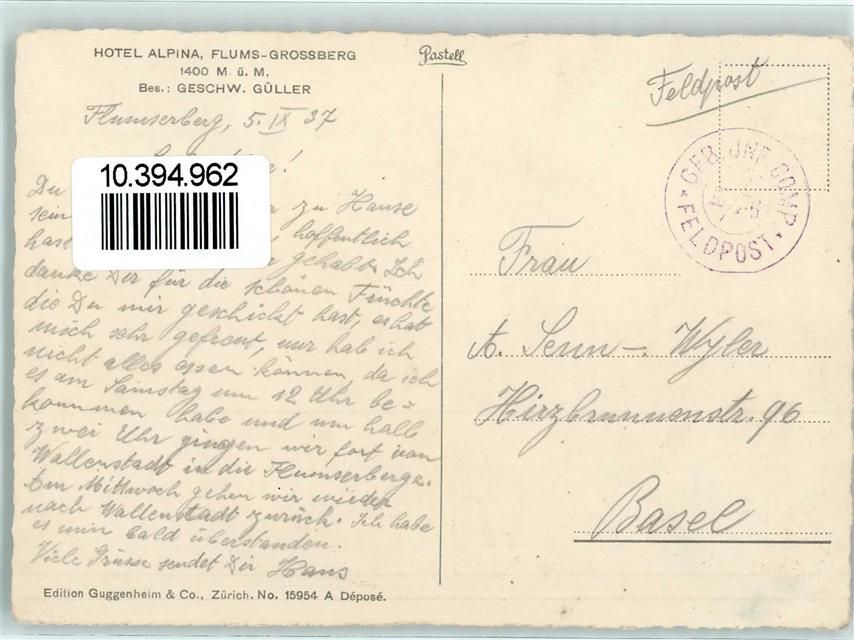 HOTEL ALPINA, FLUMS-GROSSBERG
1400 M. ü. M.
Bes.: GESCHW. GÜLLER
Flumserberg, 5. IX 37
10.394.962
Du
sein zu Hause
hast hoffentlich
gehabt. Ich
danke Dir für die schönen Früchte
die Du mir geschickt hast, es hat
mich sehr gefreut, nur hab ich
nicht alles essen können, da ich
es am Samstag um 12 Uhr be=
kommen habe und um halb
zwei Uhr gingen wir fort von
Wallenstadt in die Flumserberge.
Am Mittwoch gehen wir wieder
nach Wallenstadt zurück. Ich habe
es nun bald überstanden.
Viele Grüsse sendet Dir Hans
Edition Guggenheim & Co., Zürich. No. 15954 A Déposé.
Pastell
Feldpost
GEB. JNF. COMP.
FELDPOST
Frau
A. Senn-Wyler
Hirzbrunnenstr. 96
Basel